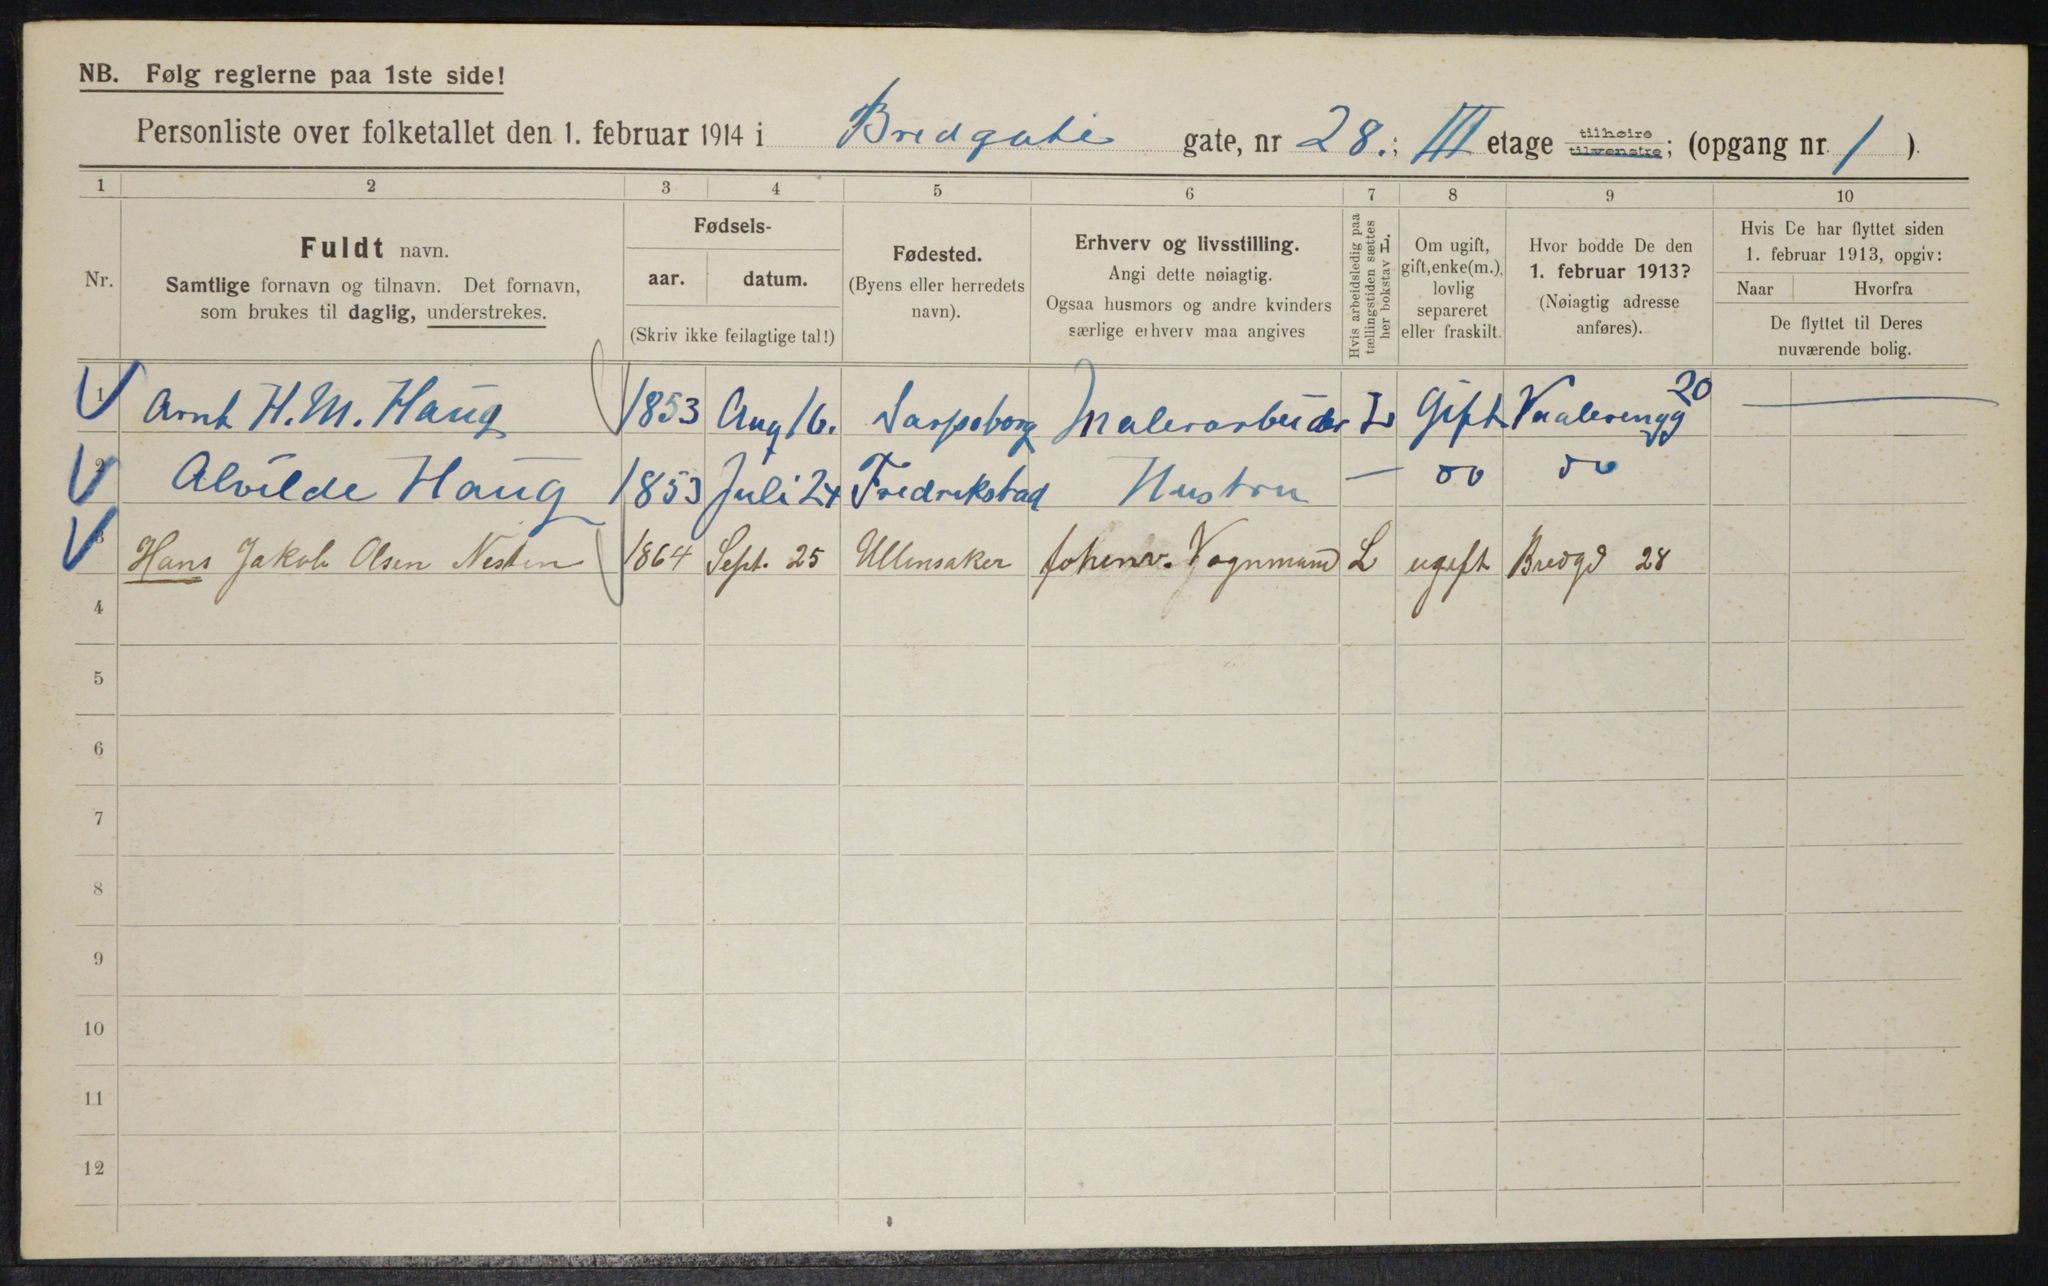 NB. Følg reglerne paa 1ste side!
Personliste over folketallet den 1. februar 1914 i Bredgate gate, nr 28.; III etage tilhøire tilvenstre; (opgang nr 1 ).
1 2 3 4 5 6 7 8 9 10
Nr.
Fuldt navn.
Samtlige fornavn og tilnavn. Det fornavn,
som brukes til daglig, understrekes.
Fødsels-
aar. datum.
(Skriv ikke feilagtige tal!)
Fødested.
(Byens eller herredets
navn).
Erhverv og livsstilling.
Angi dette nøiagtig.
Ogsaa husmors og andre kvinders
særlige erhverv maa angives
Hvis arbeidsledig paa
tællingstiden sættes
her bokstav L.
Om ugift,
gift, enke(m.),
lovlig
separeret
eller fraskilt.
Hvor bodde De den
1. februar 1913?
(Nøiagtig adresse
anføres).
Hvis De har flyttet siden
1. februar 1913, opgiv:
Naar Hvorfra
De flyttet til Deres
nuværende bolig.
1 Arnt H. M. Haug 1853 Aug 16. Sarpsborg Malerarbeider L Gift Vaalerengg 20
2 Alvilde Haug 1853 Juli 24 Fredrikstad Hustru — do do
3 Hans Jakob Olsen Nesten 1864 Sept. 25 Ullensaker forhenv. Vognmand L ugift Bredgd 28
4
5
6
7
8
9
10
11
12